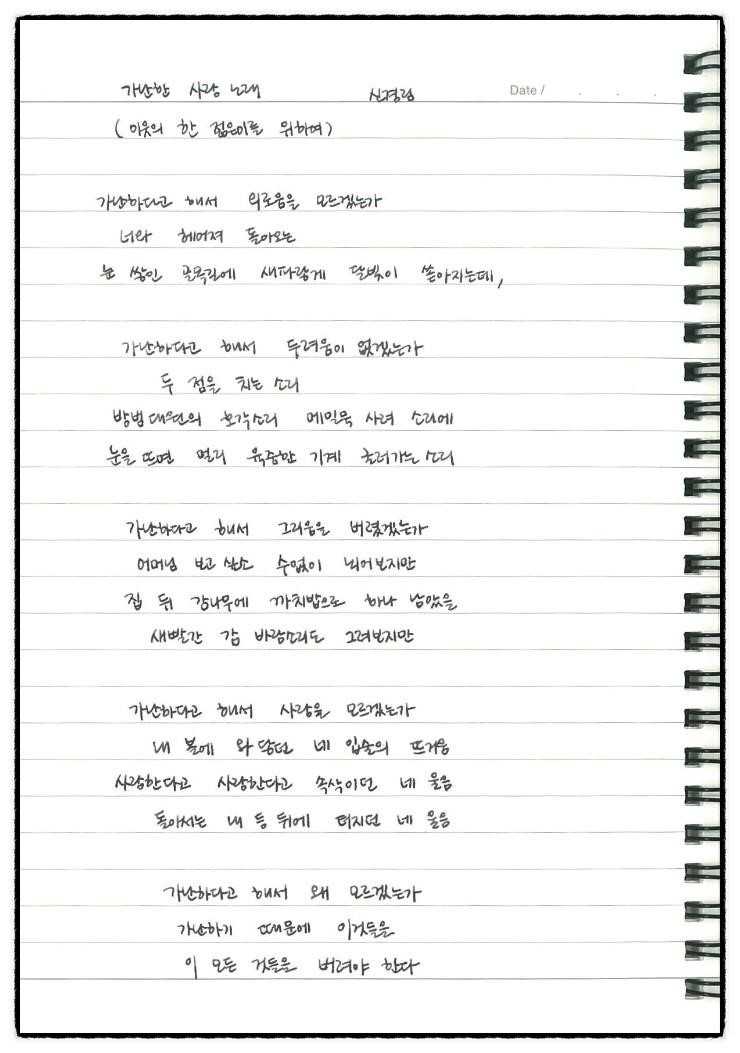 가난한 사랑 노래 신경림
Date / . . .
(이웃의 한 젊은이를 위하여)
가난하다고 해서 외로움을 모르겠는가
너와 헤어져 돌아오는
눈 쌓인 골목길에 새파랗게 달빛이 쏟아지는데,
가난하다고 해서 두려움이 없겠는가
두 점을 치는 소리
방범대원의 호각소리 메밀묵 사려 소리에
눈을 뜨면 멀리 육중한 기계 굴러가는 소리
가난하다고 해서 그리움을 버렸겠는가
어머님 보고 싶소 수없이 뇌어보지만
집 뒤 감나무에 까치밥으로 하나 남았을
새빨간 감 바람소리도 그려보지만
가난하다고 해서 사랑을 모르겠는가
내 볼에 와 닿던 네 입술의 뜨거움
사랑한다고 사랑한다고 속삭이던 네 울음
돌아서는 내 등 뒤에 터지던 네 울음
가난하다고 해서 왜 모르겠는가
가난하기 때문에 이것들을
이 모든 것들을 버려야 한다